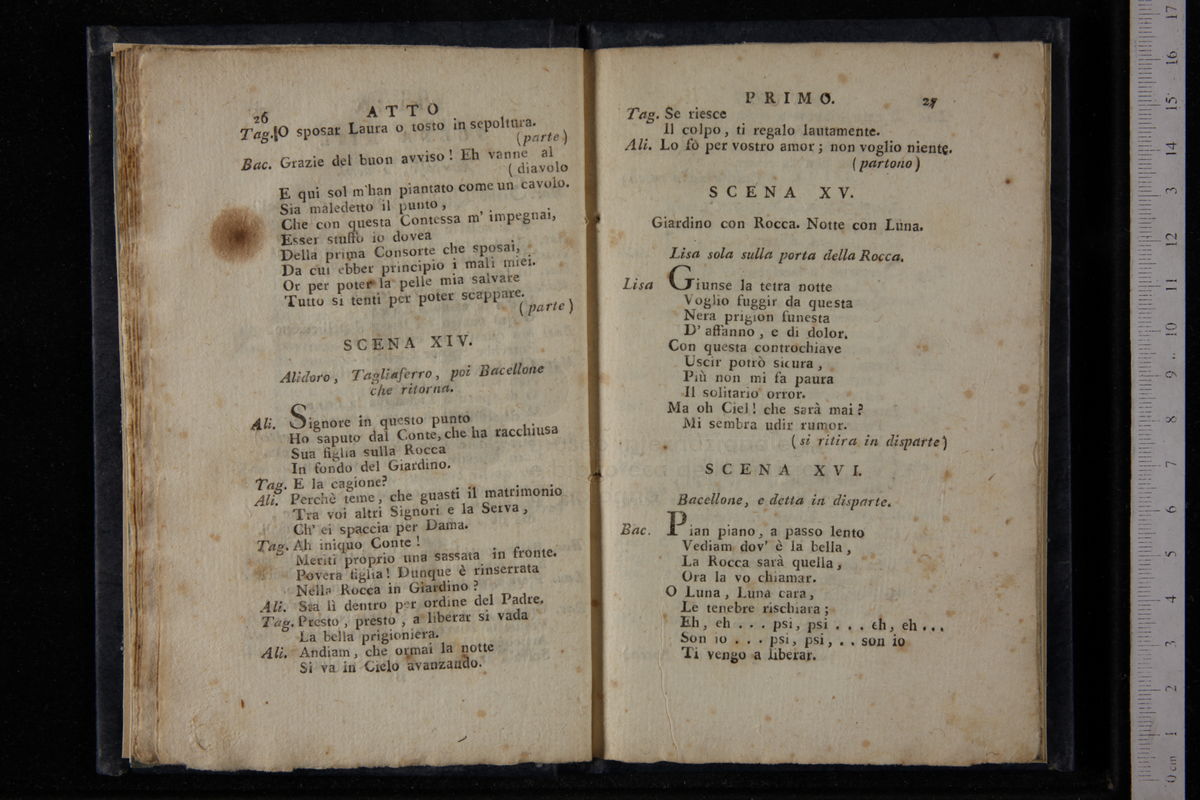 26
ATTO
Tag. O sposar Laura o tosto in sepoltura.
(parte)
Bac. Grazie del buon avviso! Eh vanne al
(diavolo
E qui sol m'han piantato come un cavolo.
Sia maledetto il punto,
Che con questa Contessa m' impegnai,
Esser stuffo io dovea
Della prima Consorte che sposai,
Da cui ebber principio i mali miei.
Or per poter la pelle mia salvare
Tutto si tenti per poter scappare.
(parte)
SCENA XIV.
Alidoro, Tagliaferro, poi Bacellone
che ritorna.
Ali. Signore in questo punto
Ho saputo dal Conte, che ha racchiusa
Sua figlia sulla Rocca
In fondo del Giardino.
Tag. E la cagione?
Ali. Perchè teme, che guasti il matrimonio
Tra voi altri Signori e la Serva,
Ch' ei spaccia per Dama.
Tag. Ah iniquo Conte!
Meriti proprio una sassata in fronte.
Povera figlia! Dunque è rinserrata
Nella Rocca in Giardino?
Ali. Sta lì dentro per ordine del Padre.
Tag. Presto, presto, a liberar si vada
La bella prigioniera.
Ali. Andiam, che ormai la notte
Si va in Cielo avanzando.
PRIMO.
27
Tag. Se riesce
Il colpo, ti regalo lautamente.
Ali. Lo fò per vostro amor; non voglio niente.
(partono)
SCENA XV.
Giardino con Rocca. Notte con Luna.
Lisa sola sulla porta della Rocca.
Lisa Giunse la tetra notte
Voglio fuggir da questa
Nera prigion funesta
D' affanno, e di dolor.
Con questa controchiave
Uscir potrò sicura,
Più non mi fa paura
Il solitario orror.
Ma oh Ciel! che sarà mai?
Mi sembra udir rumor.
(si ritira in disparte)
SCENA XVI.
Bacellone, e detta in disparte.
Bac. Pian piano, a passo lento
Vediam dov' è la bella,
La Rocca sarà quella,
Ora la vo chiamar.
O Luna, Luna cara,
Le tenebre rischiara;
Eh, eh . . . psi, psi . . . eh, eh...
Son io . . . psi, psi, . . son io
Ti vengo a liberar.
17
16
15
14
13
12
11
10
9
8
7
6
5
4
3
2
1
0 cm